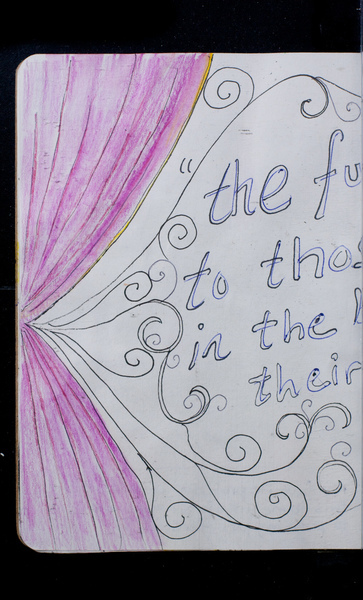 "the fu
to thos
in the
their